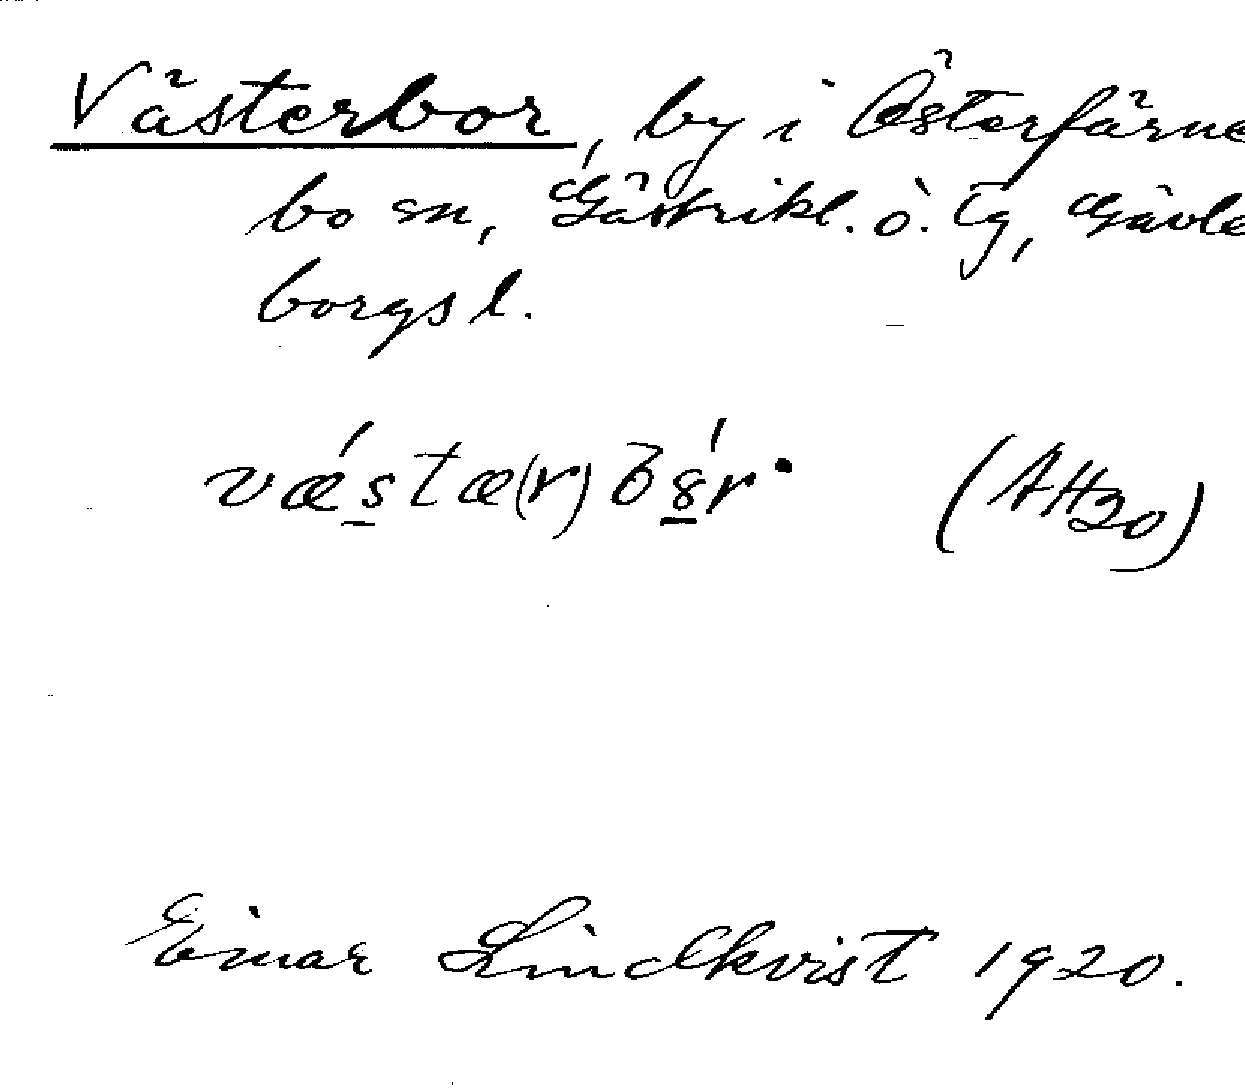 Västerbor, by i Österfärne
bo sn, Gästrikl. ö. tg, Gävle
borgs l.
væ´stæ(r)
Einar Lindkvist 1920.